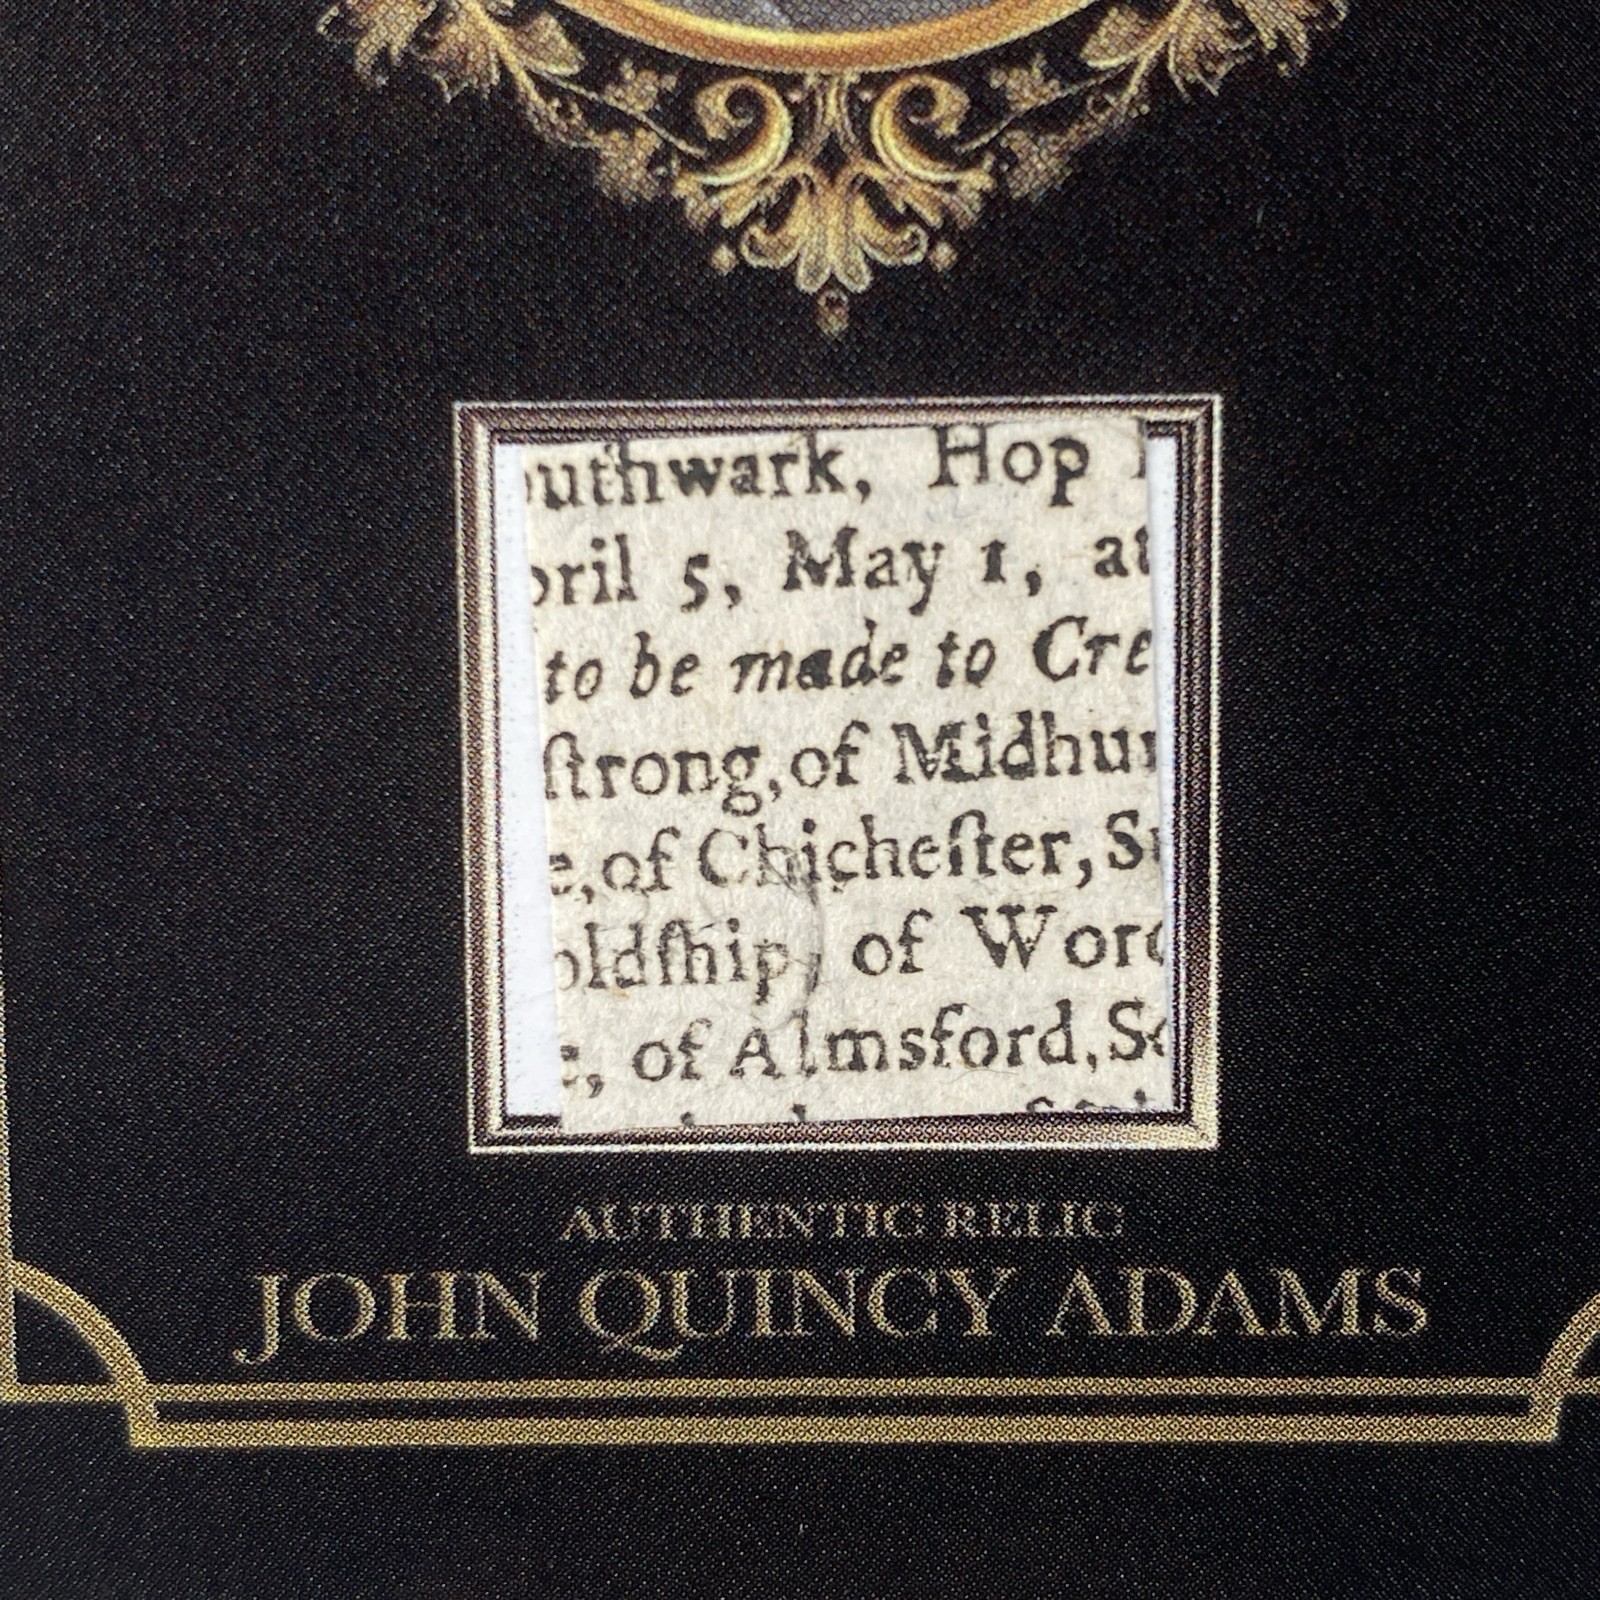 uthwark, Hop
pril 5, May 1, at
to be made to Cre
ſtrong, of Midhur
e, of Chicheſter, Su
oldſhip, of Word
e, of Almsford, So
AUTHENTIC RELIC
JOHN QUINCY ADAMS